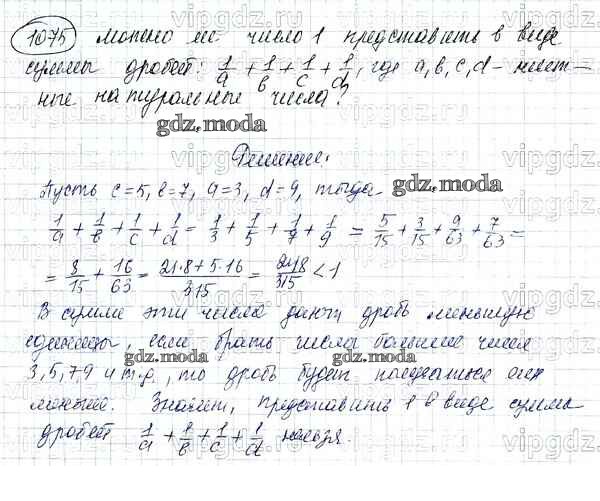 1075 можно ли число 1 представить в виде
суммы дробей: 1/a + 1/b + 1/c + 1/d, где a, b, c, d - нечет-
ные натуральные числа?
gdz.moda
Решение.
Пусть c=5, b=7, a=3, d=9, тогда
1/a + 1/b + 1/c + 1/d = 1/3 + 1/5 + 1/7 + 1/9 = 5/15 + 3/15 + 9/63 + 7/63 =
= 8/15 + 16/63 = 21·8+5·16/315 = 248/315 < 1
В сумме эти числа дают дробь меньшую
единицы, если брать числа большие чисел
3, 5, 7, 9 и т.д., то дробь будет
меньше. Значит, представить 1 в виде суммы
дробей 1/a + 1/b + 1/c + 1/d нельзя.
gdz.moda
gdz.moda
gdz.moda
gdz.moda
vipgdz.com